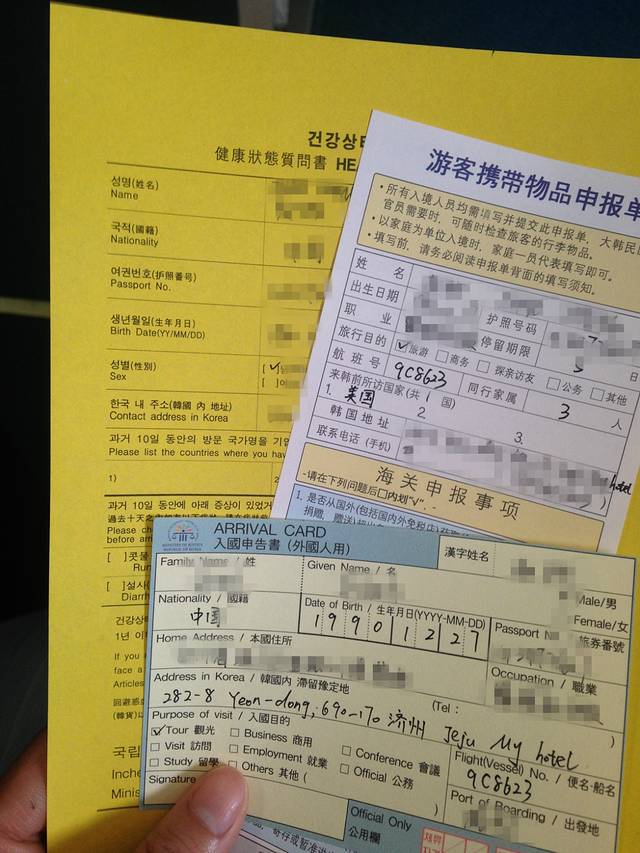 건강상태
健康狀態質問書 HE
성명(姓名)
Name
국적(國籍)
Nationality
여권번호(护照番号)
Passport No.
생년월일(生年月日)
Birth Date(YY/MM/DD)
성별(性別)
Sex
[✓]남
[ ]여
한국 내 주소(韓國 內 地址)
Contact address in Korea
과거 10일 동안의 방문 국가명을 기입
Please list the countries where you ha
1)
2
과거 10일 동안에 아래 증상이 있었거
Please ch
before arr
[ ]콧물
Run
[ ]설사
Diarrh
건강상태
1년 이
If you
face a
Articles
국립
Inche
Minis
游客携带物品申报单
·所有入境人员均需填写并提交此申报单，大韩民国
官员需要时，可随时检查旅客的行李物品。
·以家庭为单位入境时，家庭一员代表填写即可。
·填写前，请务必阅读申报单背面的填写须知。
姓 名
出生日期
护照号码
职 业
停留期限
5 日
旅行目的
☑旅游 □商务 □探亲访友 □公务 □其他
航班号
9C8623
同行家属
3 人
来韩前所访国家(共 1 国)
1. 美国
2
3.
韩国地址
hotel
联系电话 (手机)
海关申报事项
-请在下列问题后□内划"√".-
1. 是否从国外(包括国内外免税店)
ARRIVAL CARD
入國申告書 (外國人用)
漢字姓名
Family Name / 姓
Given Name / 名
Male/男
Female/女
Nationality / 國籍
中国
Date of Birth / 生年月日(YYYY-MM-DD)
1 9 9 0 1 2 2 7
Passport No.
旅券番號
Home Address / 本國住所
Occupation / 職業
Address in Korea / 韓國內 滯留豫定地
(Tel : )
282-8 Yeon-dong, 690-170 济州 Jeju My hotel
Purpose of visit / 入國目的
☑Tour 觀光 □Business 商用 □Conference 會議
□Visit 訪問 □Employment 就業 □Official 公務
□Study 留學 □Others 其他 ( )
Flight(Vessel) No. / 便名·船名
9C8623
Port of Boarding / 出發地
Signature
Official Only
公用欄